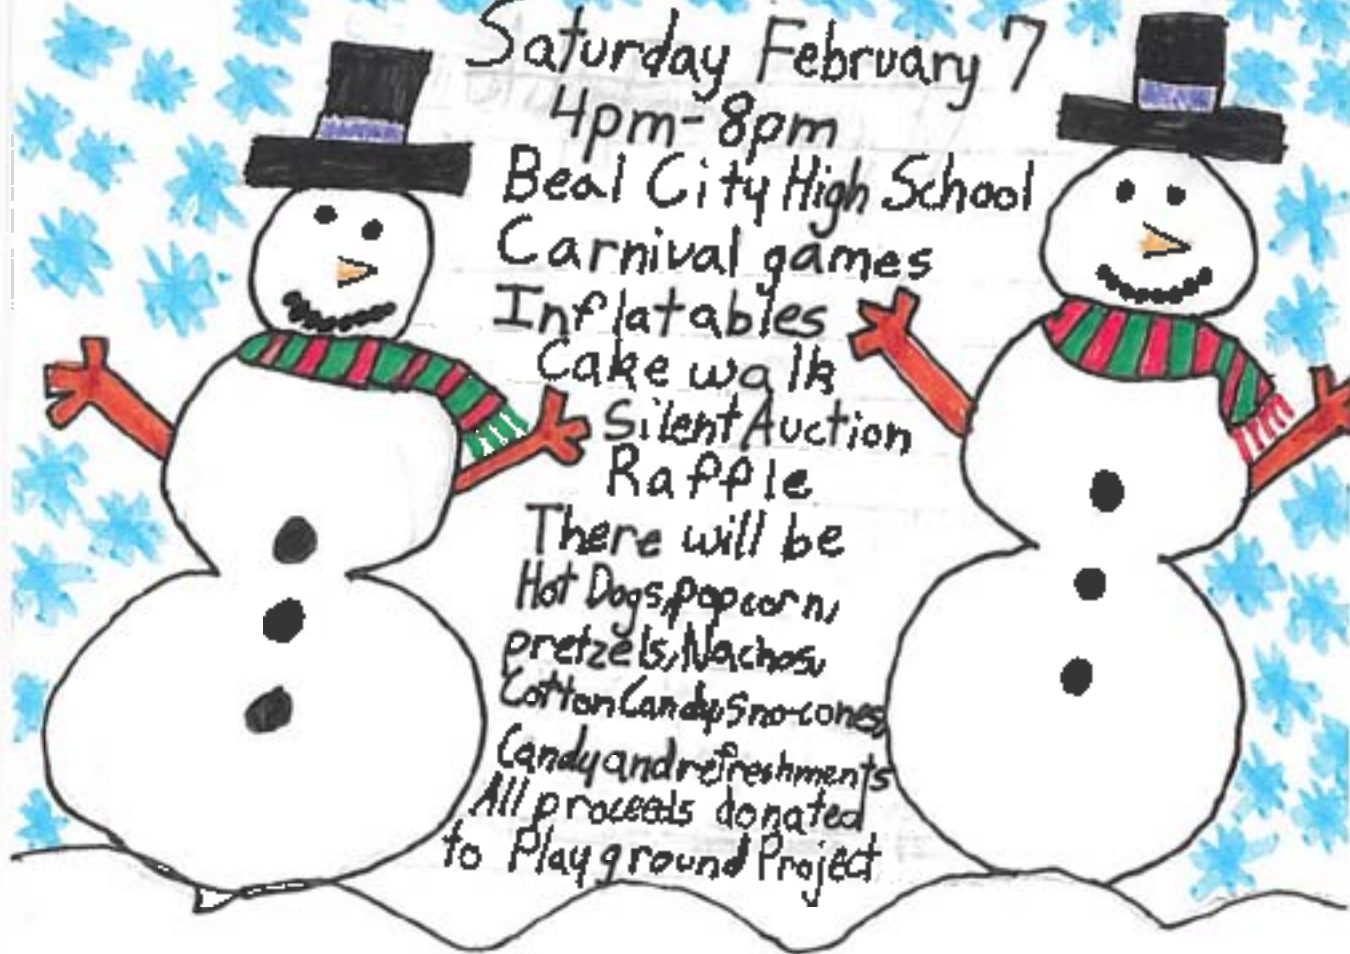 Saturday February 7
4pm-8pm
Beal City High School
Carnival games
Inflatables
Cake walk
Silent Auction
Raffle
There will be
Hot Dogs, popcorn,
pretzels, Nachos,
Cotton Candy, Sno-cones,
Candy and refreshments
All proceeds donated
to Playground Project